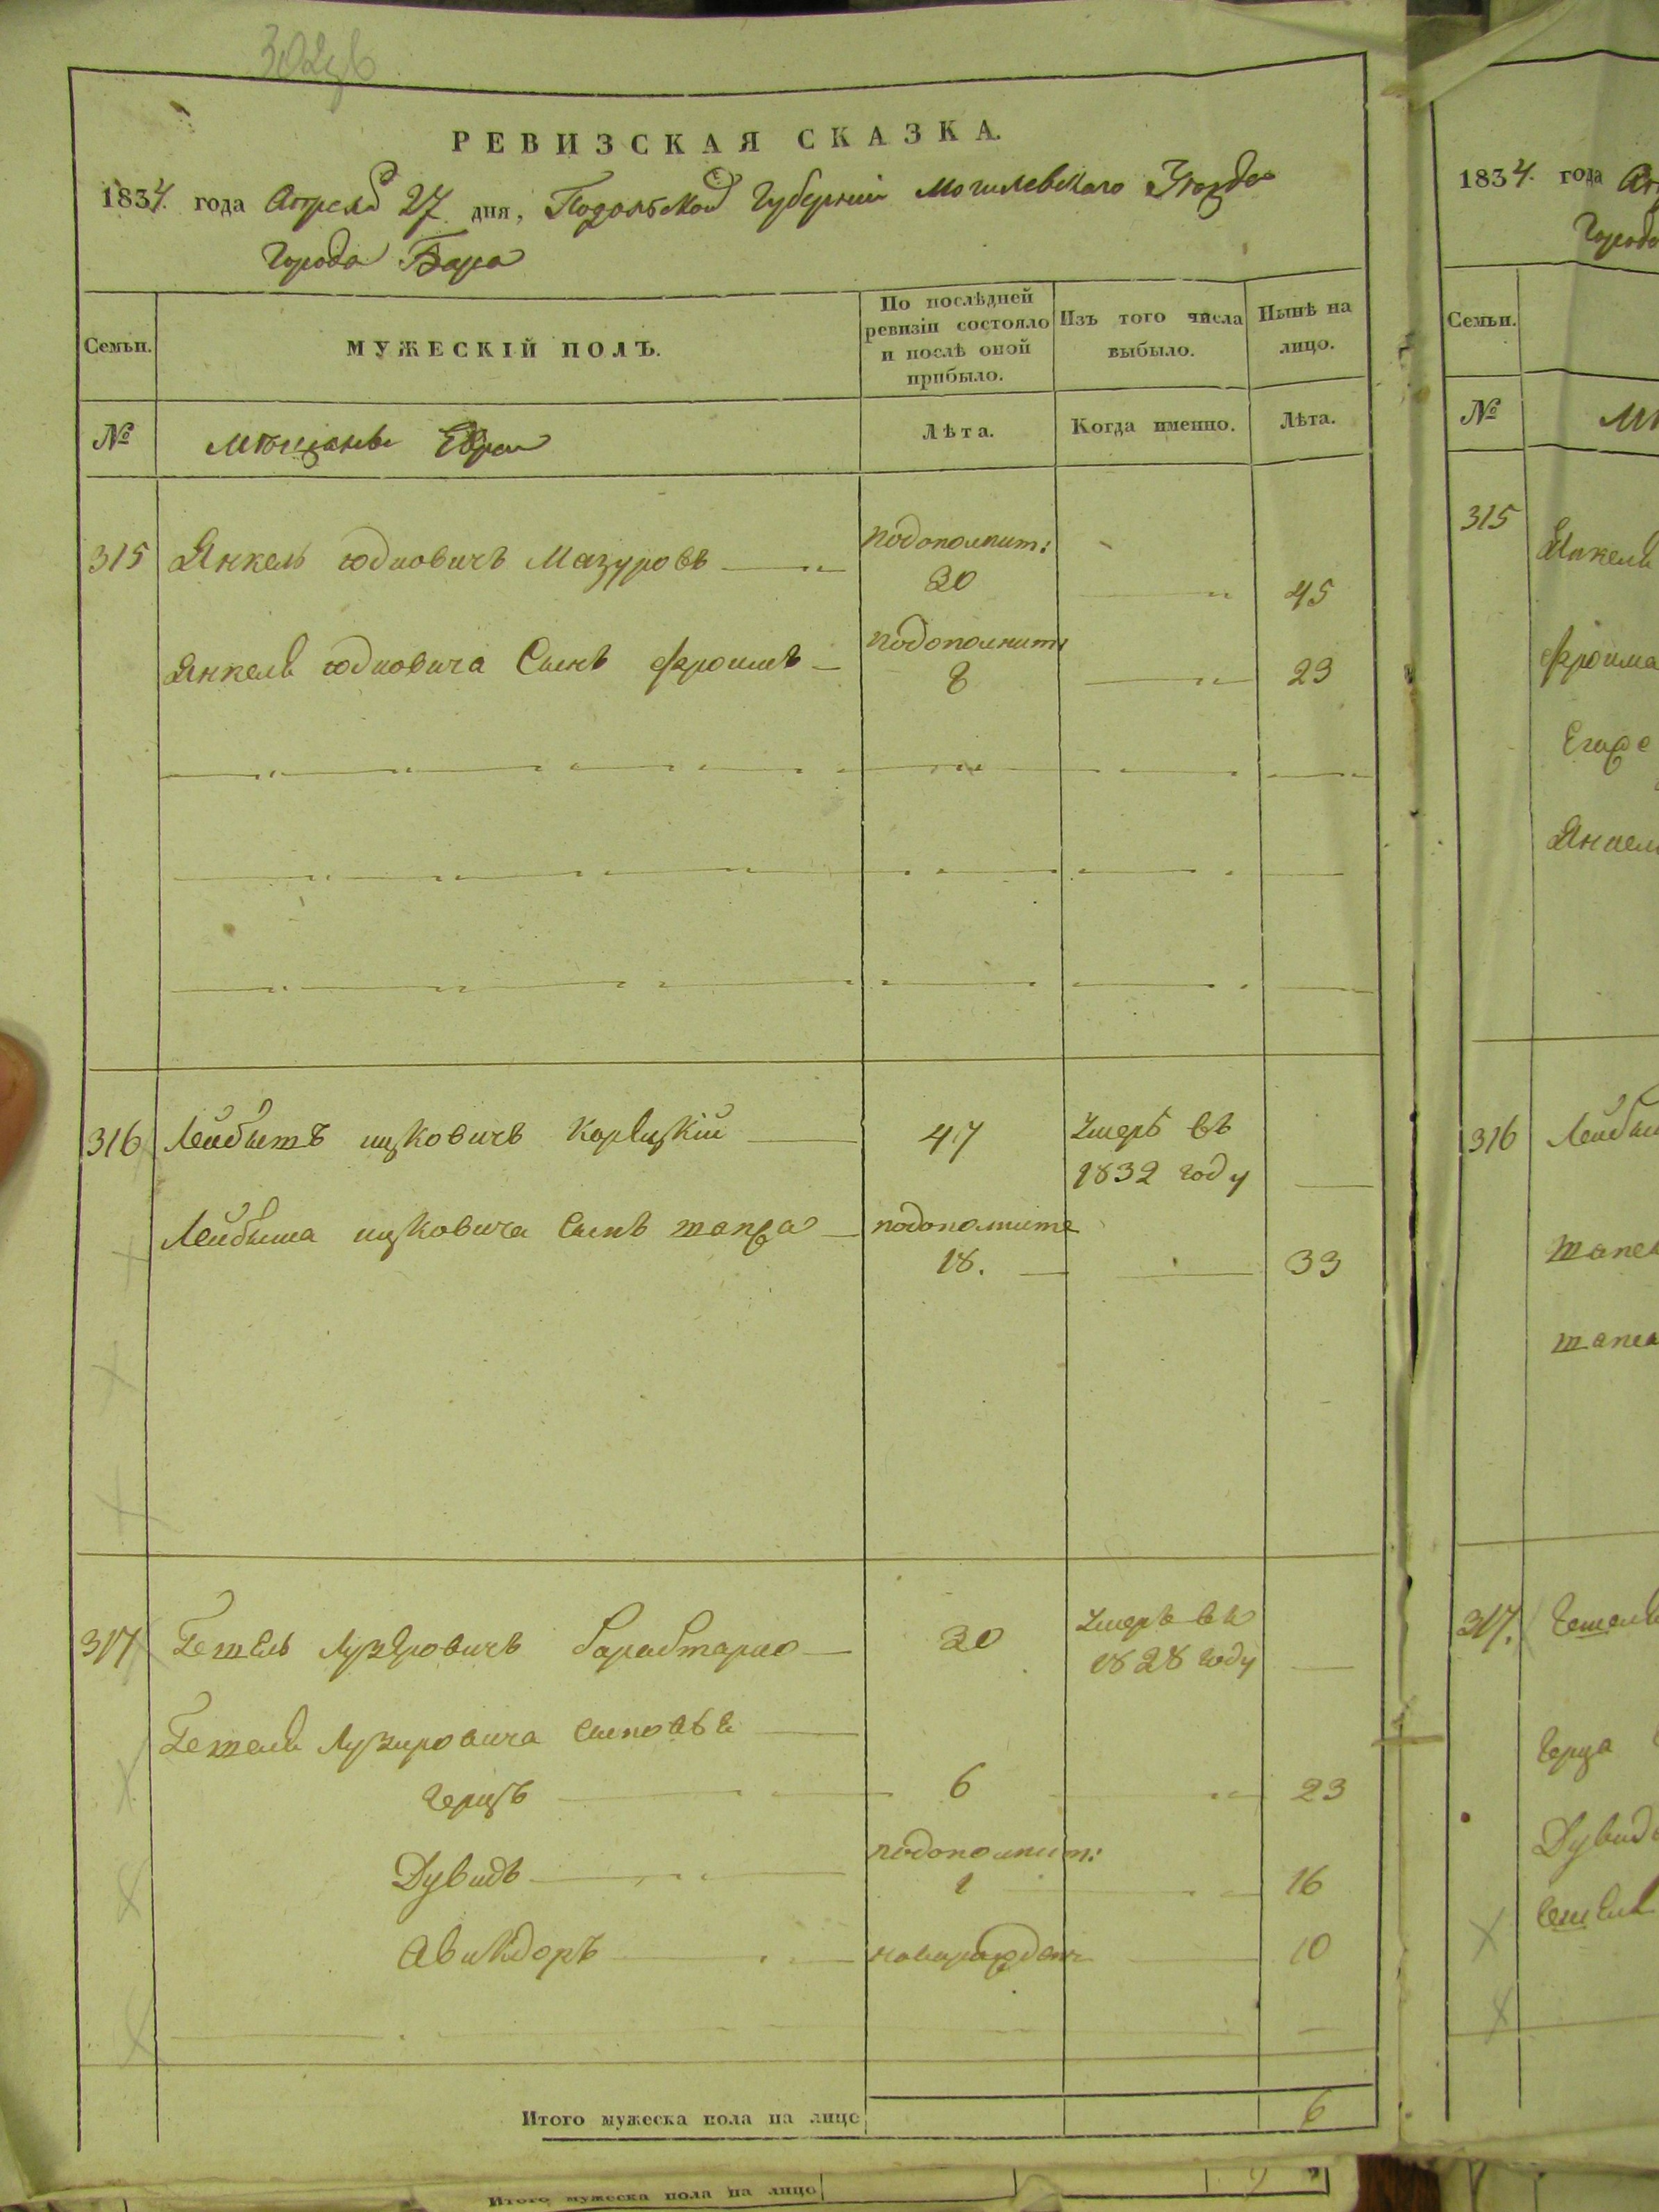 РЕВИЗСКАЯ СКАЗКА.
1834. года Апреля 27 дня, Подольской Губернии Могилевского Уезда
Города Бара
Семьи.
МУЖЕСКІЙ ПОЛЪ.
По послѣдней ревизіи состояло и послѣ оной прибыло.
Изъ того числа выбыло.
Нынѣ на лицо.
№
Мѣщанъ Евреи
Лѣта.
Когда именно.
Лѣта.
315 Янкель юдковичъ Мазуровъ подополнит: 30 45
Янкеля юдковича Сынъ фроимъ подополнит: 8 23
316 Лейбышъ ицковичъ Корецкій 47 Умеръ въ 1832 году
Лейбыша ицковича Сынъ подополните 18. 33
317 Гетель Лузеровичъ 30 Умеръ въ 1828 году
Гетеля Лузировича Сыновья
Герцъ 6 23
Дувидъ подополнит: 1 16
Авигдоръ новорожден 10
Итого мужеска пола на лицо 6
1834. года
Города
Семьи.
№
315
Янкеля
фроима
316
317.
Герца
Итого мужеска пола на лицо